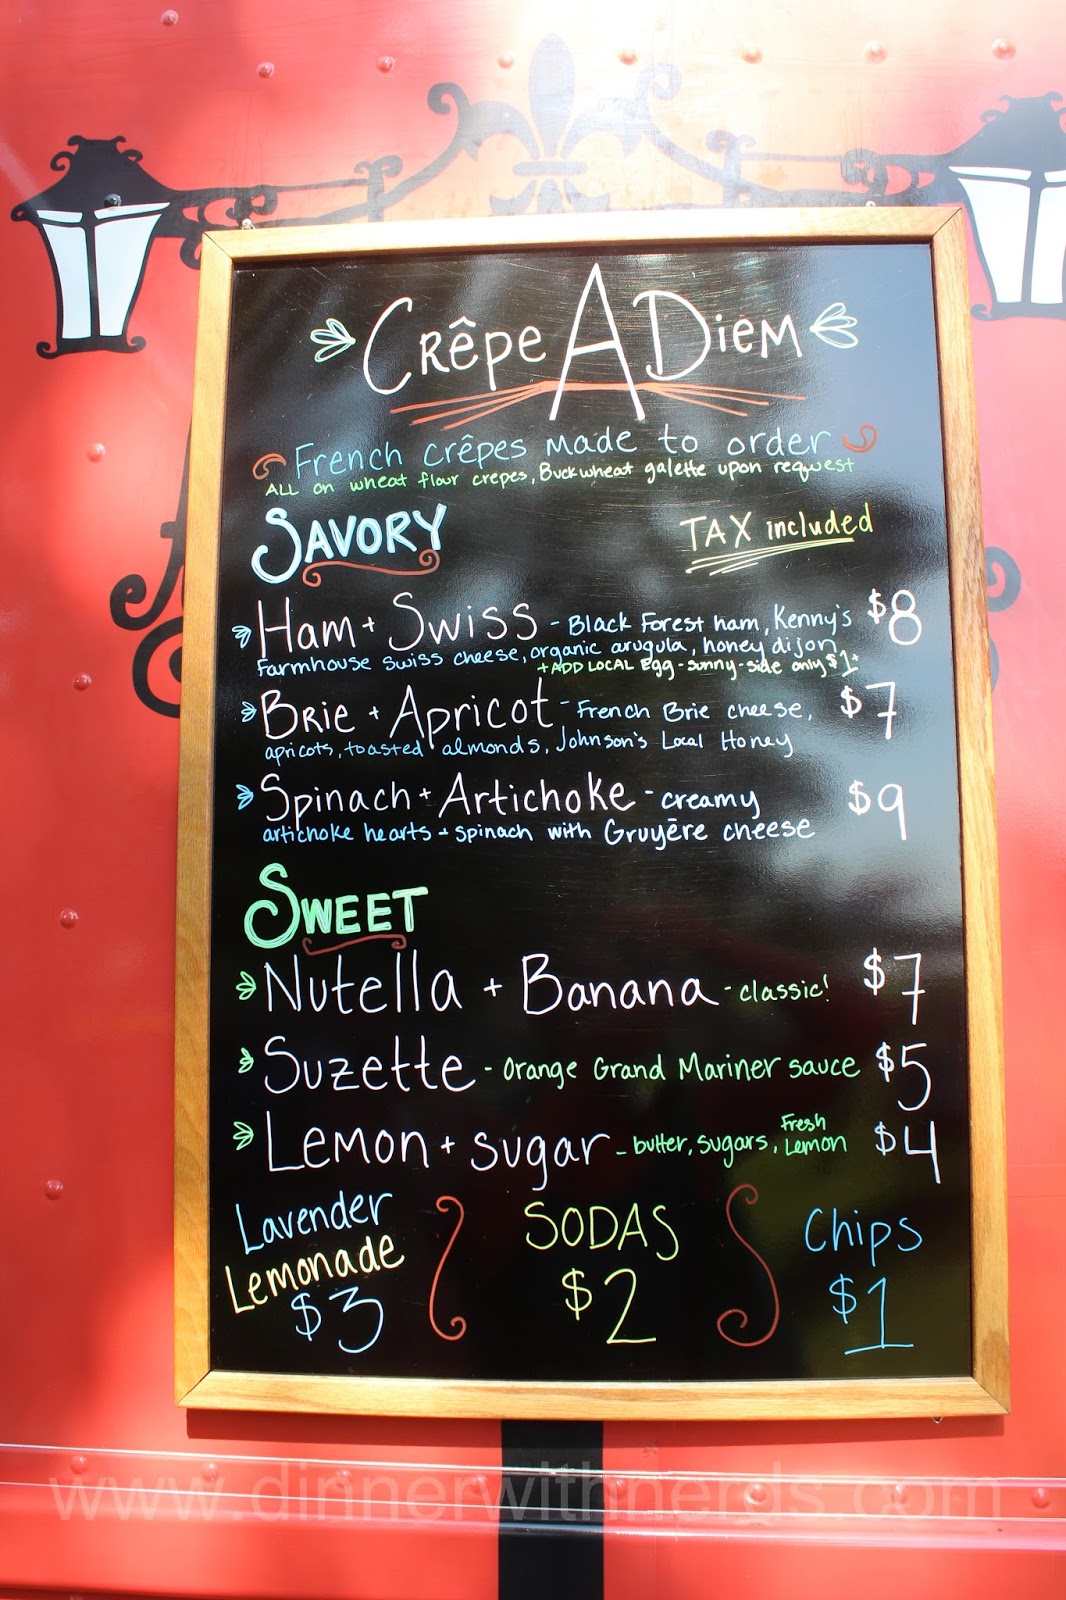 Crêpe A Diem
French crêpes made to order
ALL on wheat flour crepes, Buckwheat galette upon request
SAVORY
TAX included
Ham + Swiss - Black Forest ham, Kenny's $8
Farmhouse swiss cheese, organic arugula, honey dijon
+ADD LOCAL Egg - sunny-side only $1+
Brie + Apricot - French Brie cheese, $7
apricots, toasted almonds, Johnson's Local Honey
Spinach + Artichoke - creamy $9
artichoke hearts + spinach with Gruyēre cheese
SWEET
Nutella + Banana - classic! $7
Suzette - orange Grand Mariner sauce $5
Lemon + sugar - butter, sugars, Fresh Lemon $4
Lavender
Lemonade
$3
SODAS
$2
Chips
$1
www.dinnerwithnerds.com